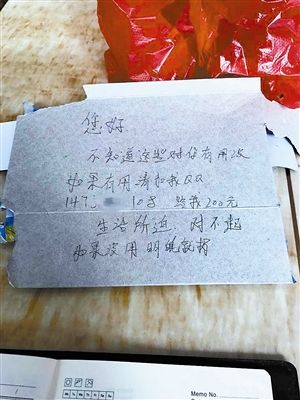 您好.
不知道这些对你有用没
如果有用请加我QQ
147 108 给我200元
生活所迫. 对不起
如果没用 明晚就
Memo No.